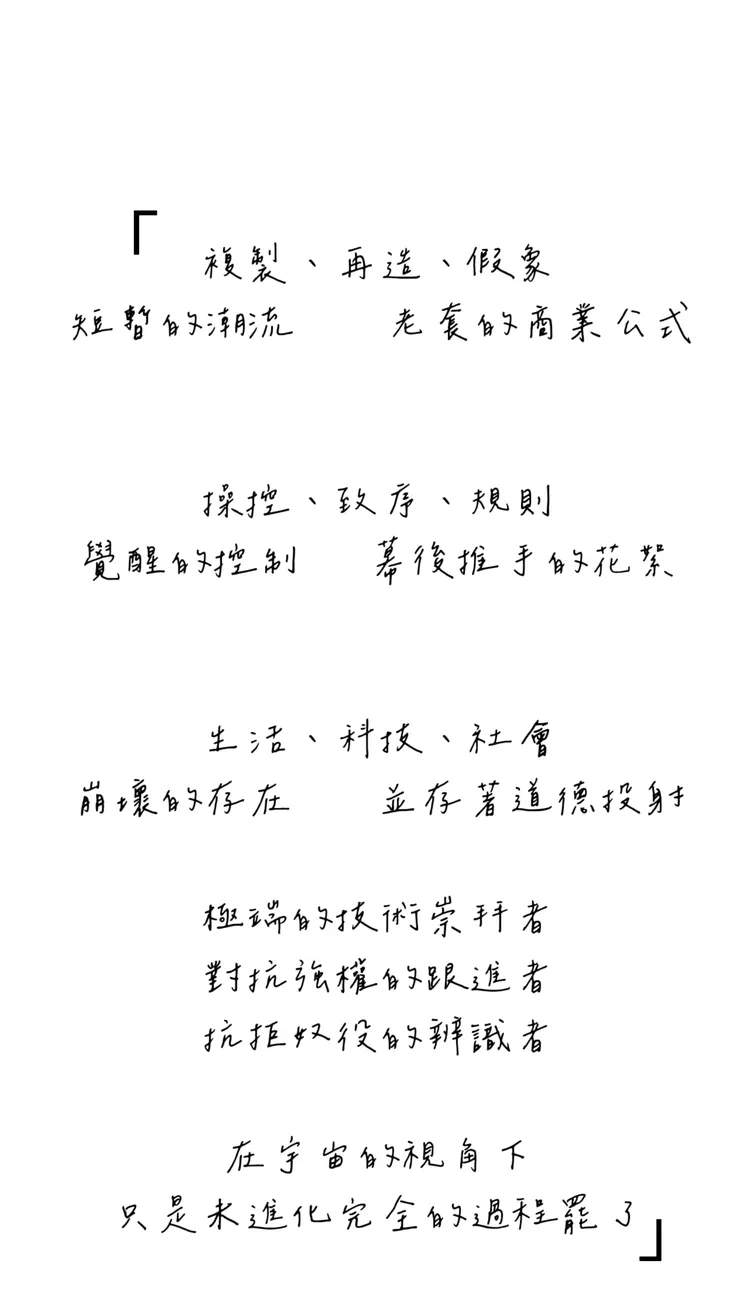 「
複製、再造、假象
短暫的潮流 老套的商業公式
操控、致序、規則
覺醒的控制 幕後推手的花絮
生活、科技、社會
崩壞的存在 並存著道德投射
極端的技術崇拜者
對抗強權的跟進者
抗拒奴役的辨識者
在宇宙的視角下
只是未進化完全的過程罷了
」